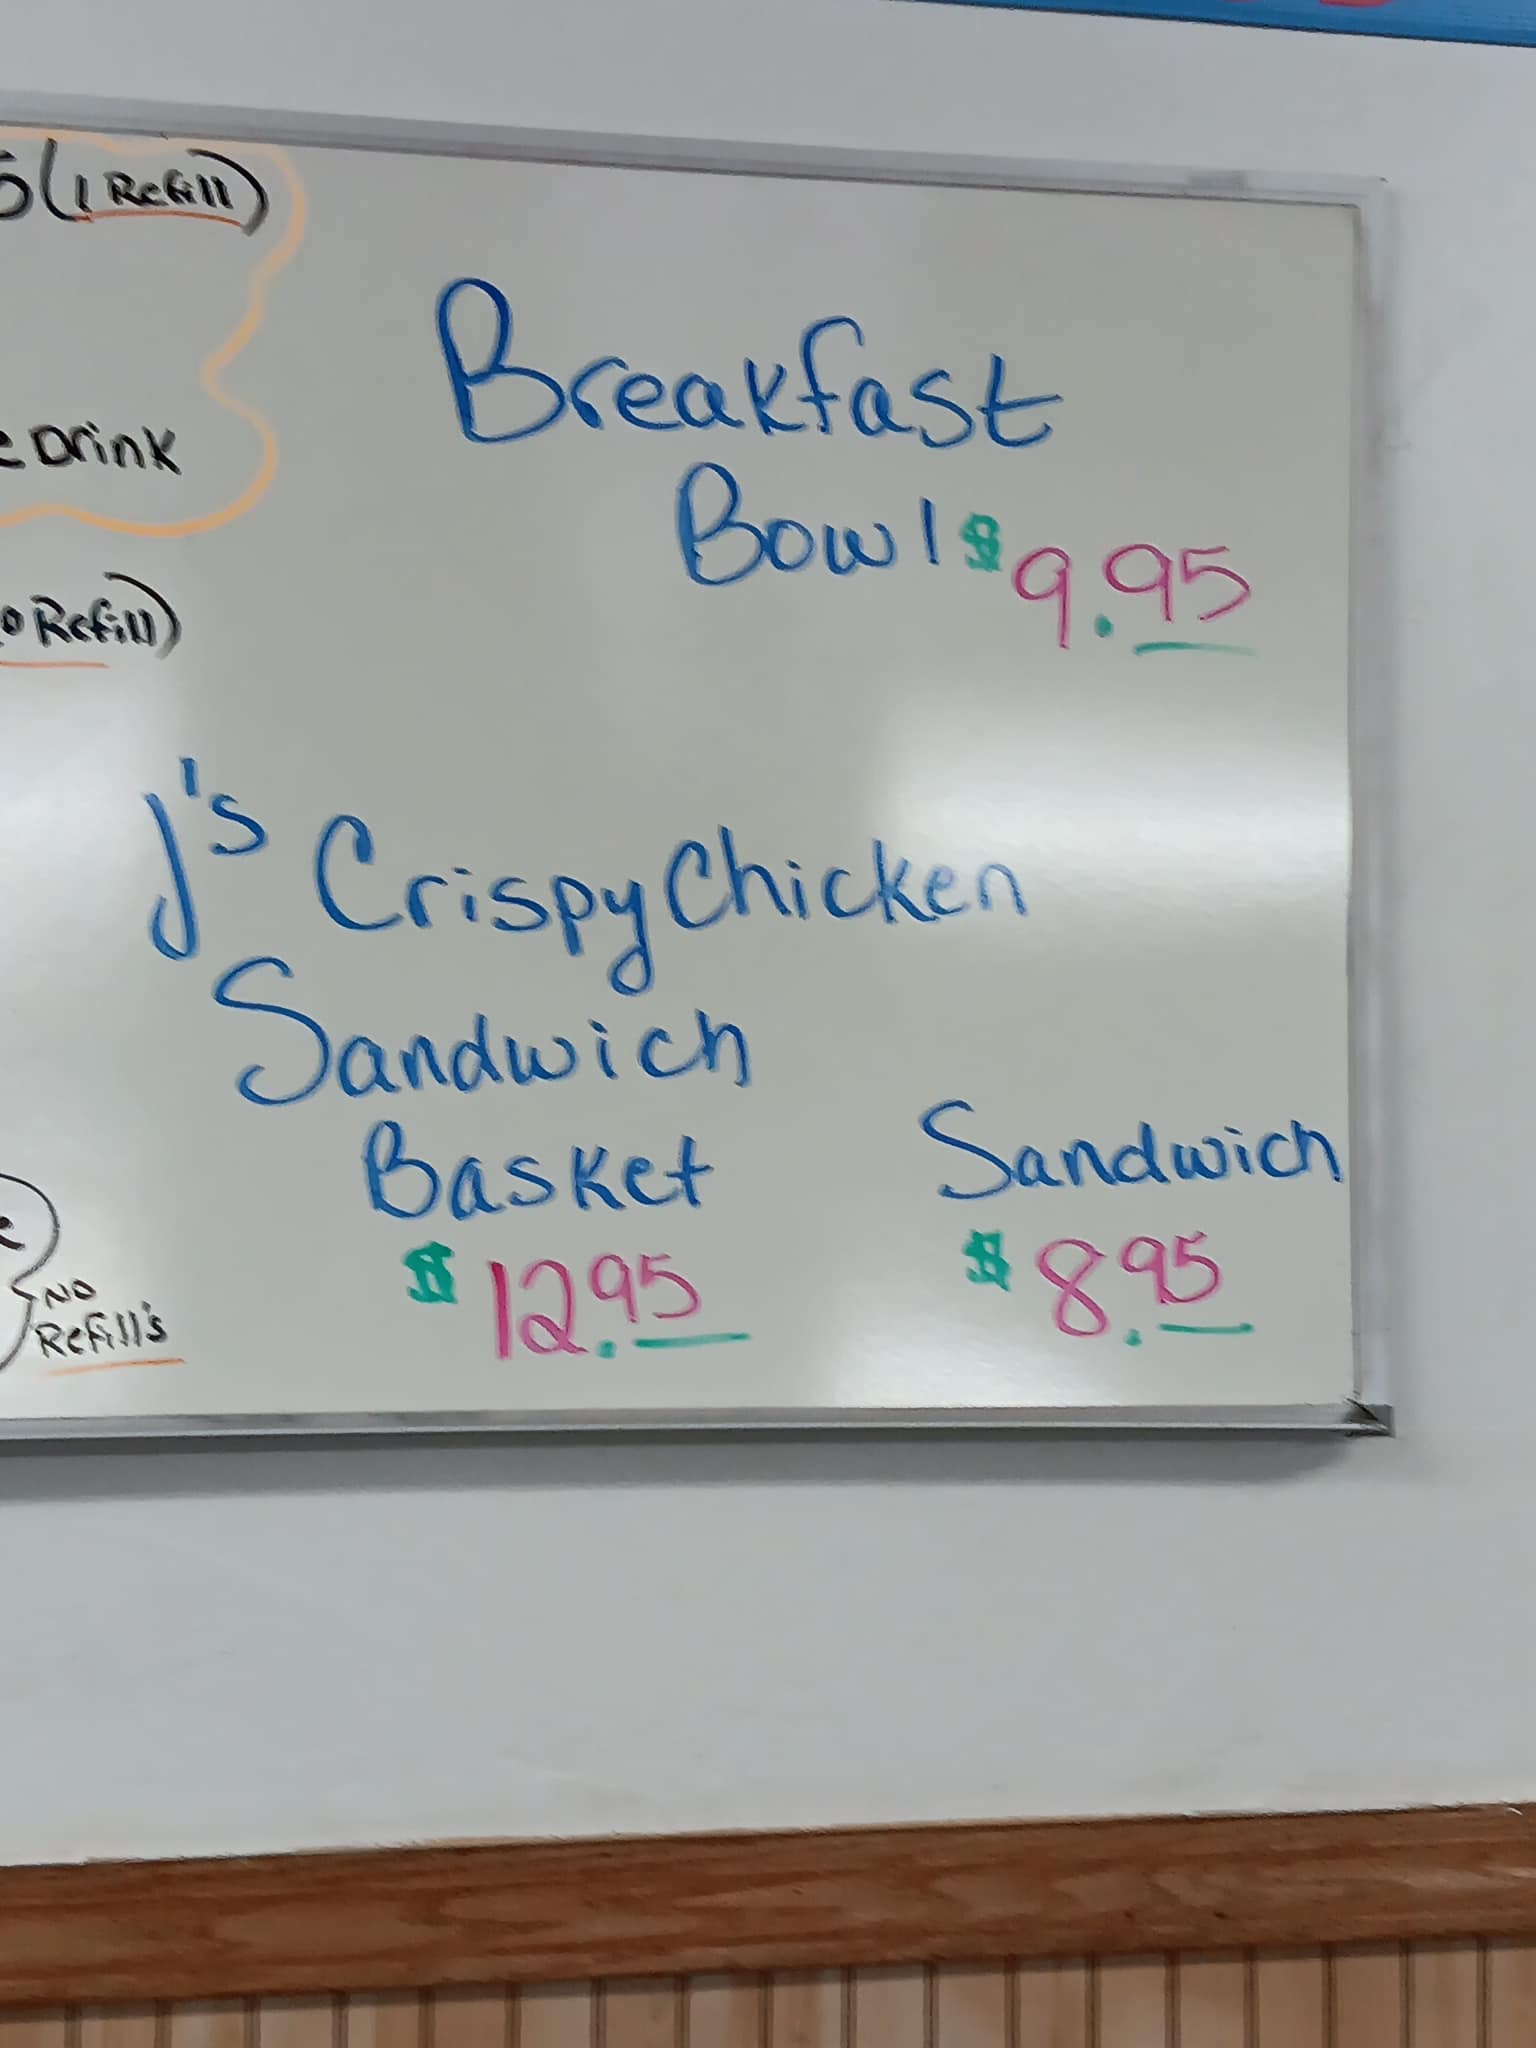 (1 Refill)
Drink
Refill)
NO
Refill's
Breakfast
Bowl $9.95
J's Crispy Chicken
Sandwich
Basket
$12.95
Sandwich
$8.95